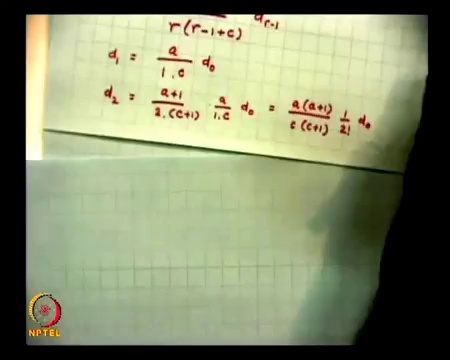 r(r-1+c) d_{r-1}
d_1 = \frac{a}{1 \cdot c} d_0
d_2 = \frac{a+1}{2 \cdot (c+1)} \cdot \frac{a}{1 \cdot c} d_0 = \frac{a(a+1)}{c(c+1)} \frac{1}{2!} d_0
NPTEL